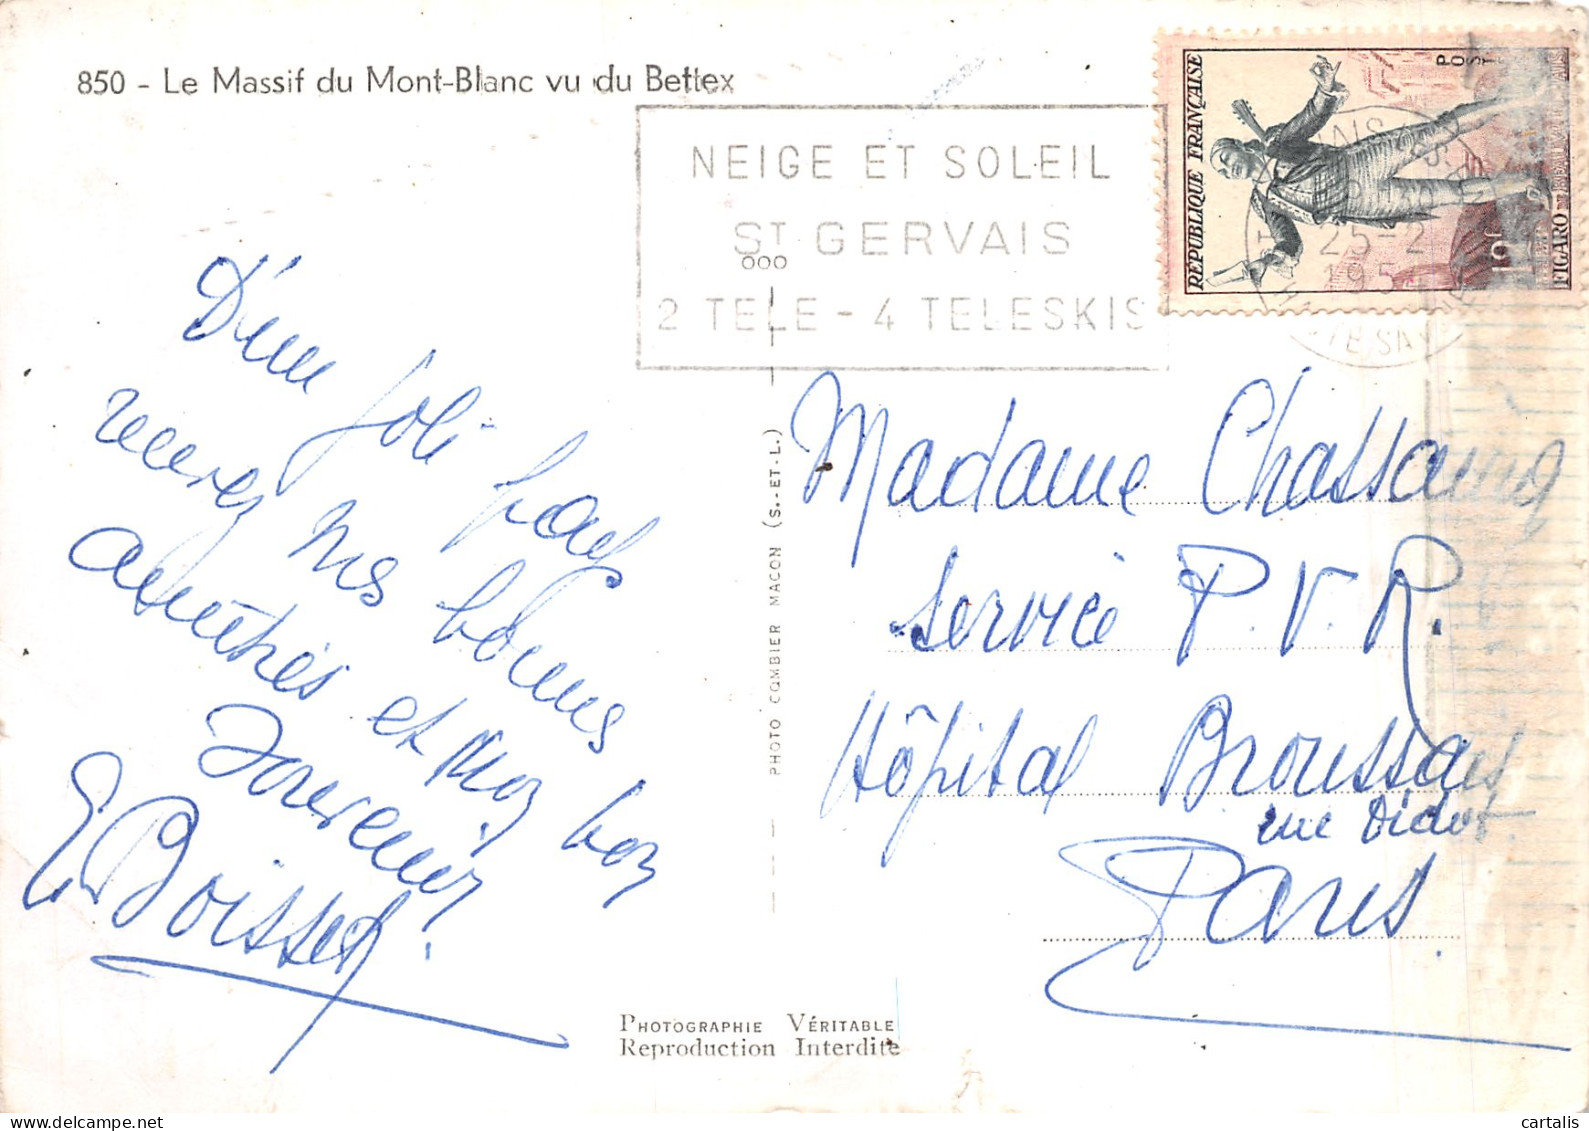 850 - Le Massif du Mont-Blanc vu du Bettex
NEIGE ET SOLEIL
ST GERVAIS
2 TELE - 4 TELESKIS
OOO
RÉPUBLIQUE FRANÇAISE
POST
FIGARO
25-2
195
HTE SAV
D'un joli pays
recevez nos bonnes
amitiés et mon bon
souvenir.
E Boisset
PHOTO COMBIER MACON (S.-ET-L.)
Madame Chassaing
Service P.V.R.
Hôpital Broussais
rue Didot
Paris.
PHOTOGRAPHIE VÉRITABLE
Reproduction Interdite
cartalis